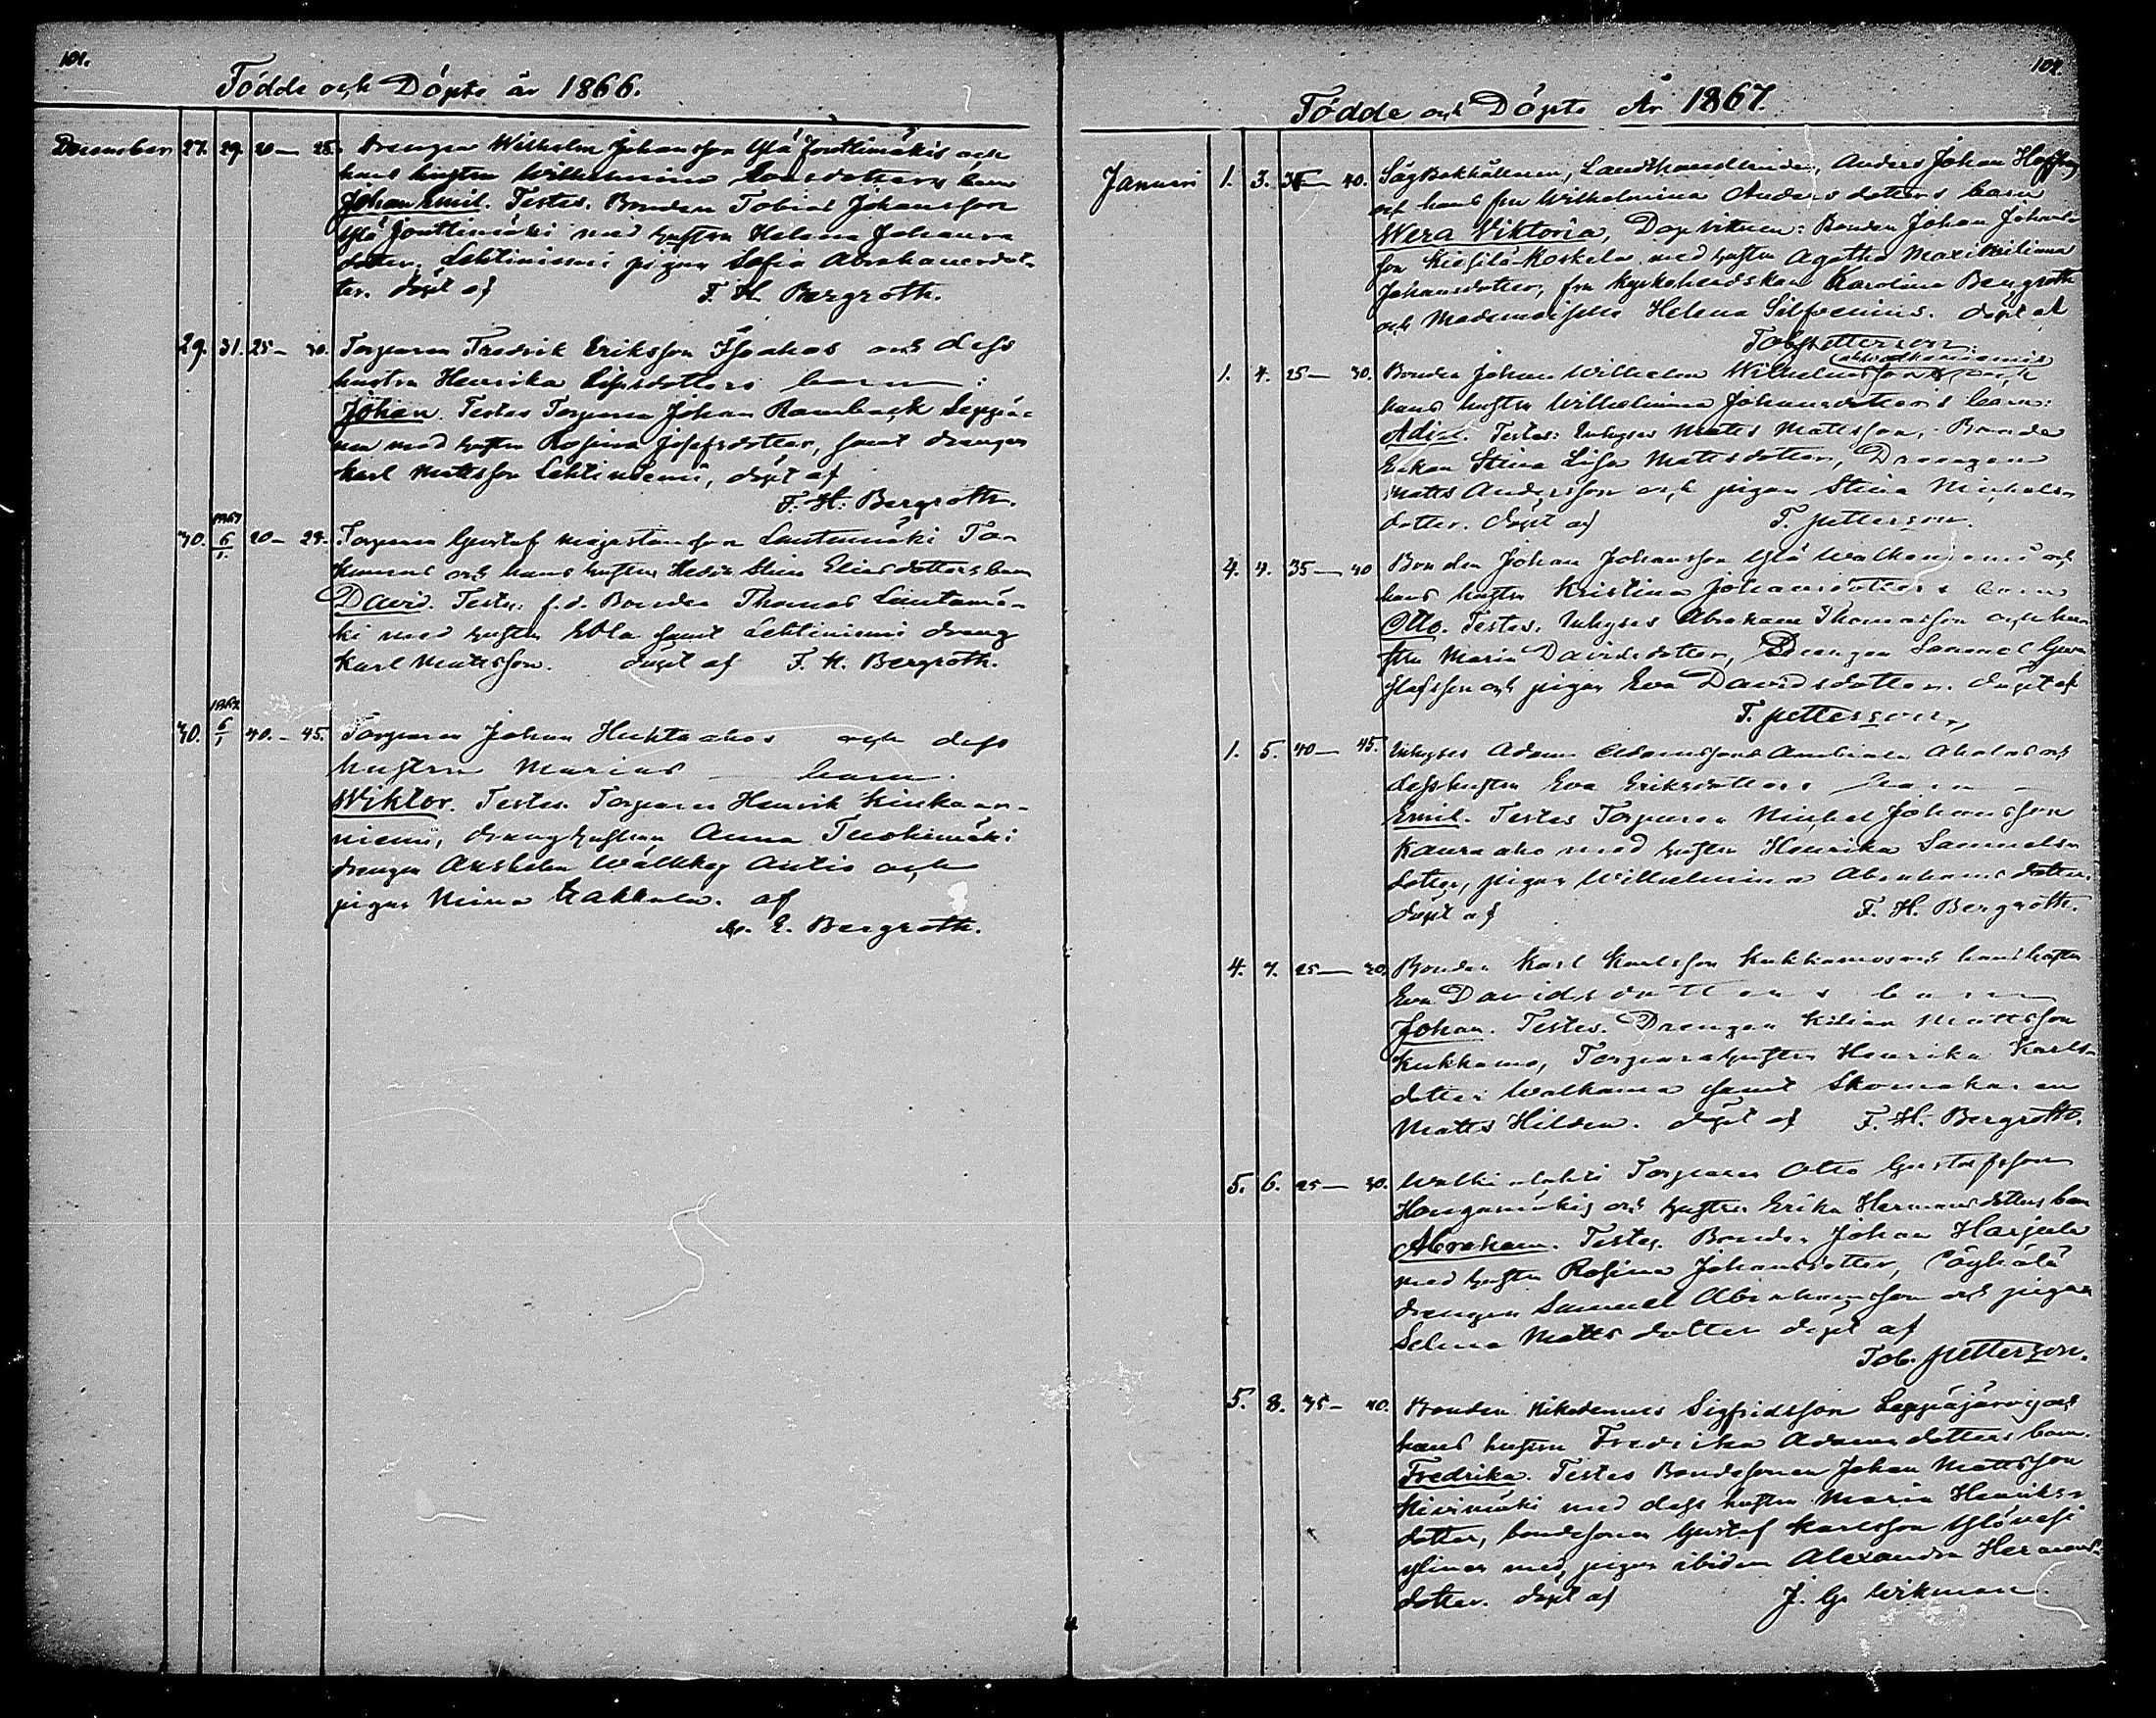 101.
Födde och Döpte år 1866.
December 27. 29. 20 — 25. Drengen Wilhelm Johansson Ylä Jouttimäkis och
hans hustru Wilhelmina dotters barn
Johan Emil. Testes. Bonden Tobias Johansson
Ylä Jouttimäki med hustru Helena Johans
dotter, Lehtiniemi pigan Sofia Abrahamsdot-
ter. döpt af F. H. Bergroth.
29. 31. 25 — 30. Torparen Fredrik Eriksson och dess
hustru Henrika dotters barn:
Johan. Testes Torparen Johan Ramback Leppä-
nen med hustru Rosina Josefsdotter, samt drengen
Karl Mattsson Lehtiniemi, döpt af
F. H. Bergroth.
30. 1867 6/1 20 — 25. Torparen Gustaf Lautamäki
och hans hustru Hedda Stina Eliasdotters barn
David. Testes: f.d. Bonden Thomas Lautamä-
ki med hustru Ebba samt Lehtiniemi dreng
Karl Mattsson. döpt af F. H. Bergroth.
30. 1867 6/1 40. — 45. Torparen Johan Huhtaahos och dess
hustru Marias — barn.
Wiktor. Testes. Torparen Henrik
niemi, dreng hustrun Anna Tuohimäki
drengen Anshelm Autio och
pigan Mina Takkala. af
E. Bergroth.
102.
Födde och Döpte År 1867.
Januari 1. 3. 35 — 40. Landthandlanden, Anders Johan
och hans fru Wilhelmina Andersdotters barn
Wera Viktoria, Dopvittnen: Bonden Johan Johans-
son Koskela med hustru Agatha Maximiliana
Johansdotter, fru Karolina Bergroth
och Mademoiselle Helena Silfvenius. döpt af
Tob. Petterson.
1. 4. 25 — 30. Bonden Johan Wilhelm Wilhelmsson och
hans hustru Wilhelmina Johansdotters barn:
Testes: Inhyses Matts Mattsson, Bonde
Enkan Stina Lisa Mattsdotter, Drengen
Matts Andersson och pigan Stina Michels-
dotter. döpt af T. Petterson.
4. 4. 35 — 40 Bonden Johan Johansson Ylä och
hans hustru Kristina Johansdotters barn
Otto. Testes. Inhyses Abraham Thomasson och hu-
stru Maria Davidsdotter, Drengen Samuel Gu-
stafsson och pigan Eva Davidsdotter. döpt af
T. Petterson.
1. 5. 40 — 45. Inhyses Adam Adamssons och
dess hustru Eva Eriksdotters barn
Emil. Testes Torparen Michel Johansson
Kauraaho med hustru Henrika Samuels-
dotter, pigan Wilhelmina Abrahamsdotter.
döpt af F. H. Bergroth.
4. 7. 25 — 30. Bonden Karl Karlsson Kukkamos och hans hustru
Eva Davidsdotters barn
Johan. Testes. Drengen Kilian Mattsson
Kukkamo, Torparehustrun Henrika Karls-
dotter samt Skomakaren
Matts Hilden. döpt af F. H. Bergroth.
5. 6. 25 — 30. Torparen Otto Gustafsson
och hustru Erika Hermansdotters barn
Abraham. Testes. Bonden Johan Harjula
med hustru Rosina Johansdotter,
drengen Samuel Abrahamsson och pigan
Selma Mattsdotter döpt af
Tob. Petterson.
5. 8. 35 — 40. Bonden Nikodemus Sigfridsson Leppäjärvi och
hans hustru Fredrika Adamsdotters barn.
Fredrika. Testes Bondesonen Johan Mattsson
Kivimäki med dess hustru Maria Henriks-
dotter, bondesonen Gustaf Karlsson
med, pigan ibidem Alexandra Hermans-
dotter. döpt af J. G. Wikman